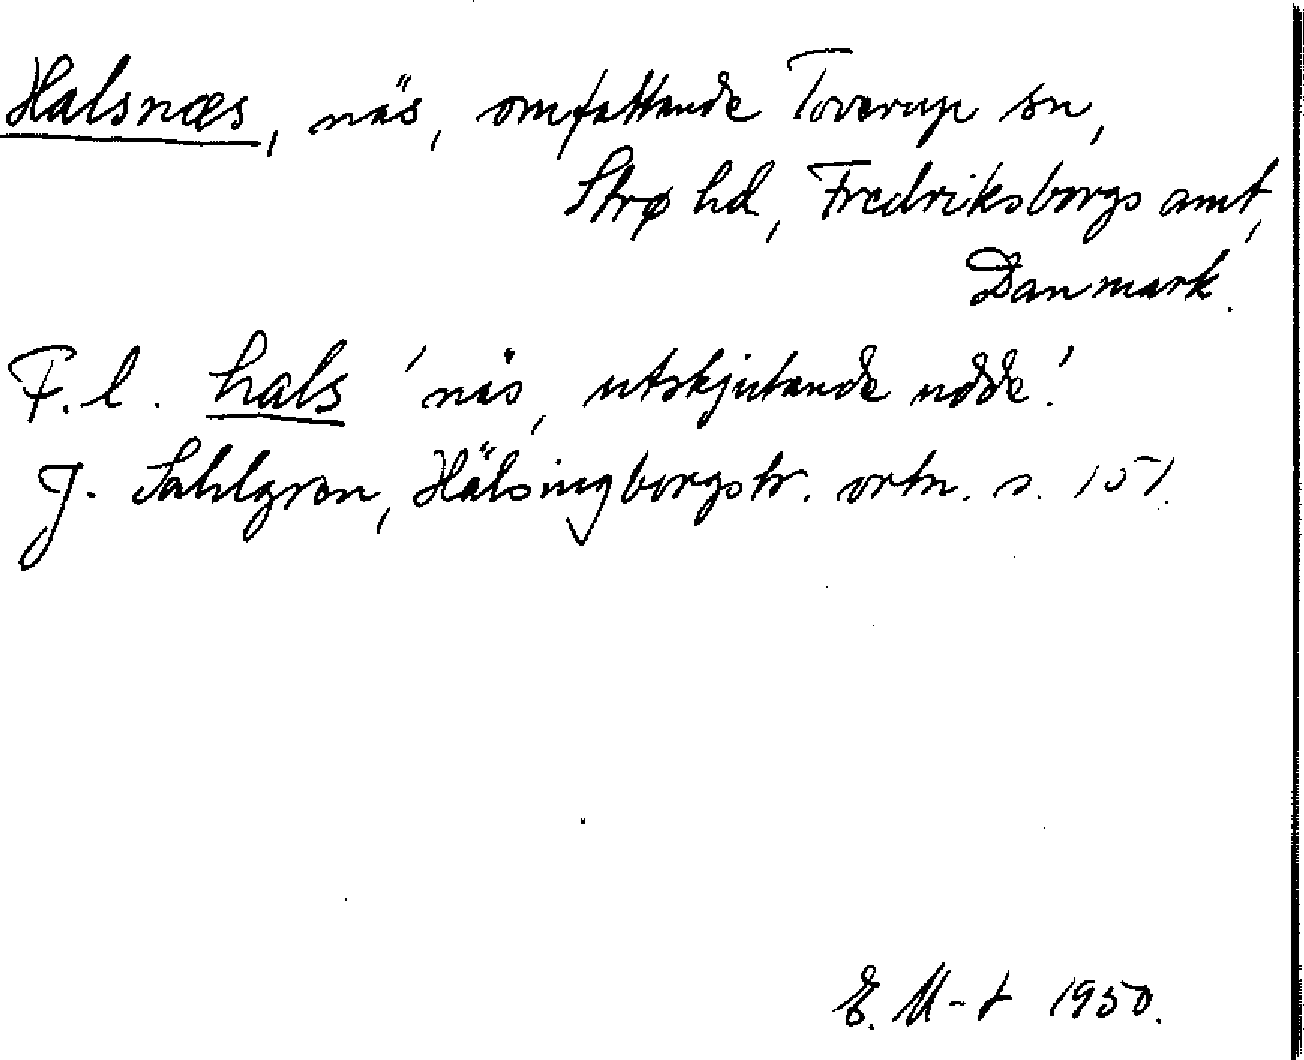 Halsnæs, näs, omfattande Toverup sn,
Strø hd, Fredriksborgs amt,
Danmark.
F. l. hals 'näs, utskjutande udde'.
J. Sahlgren, Hälsingborgstr. ortn. s. 151.
E. M-t 1950.